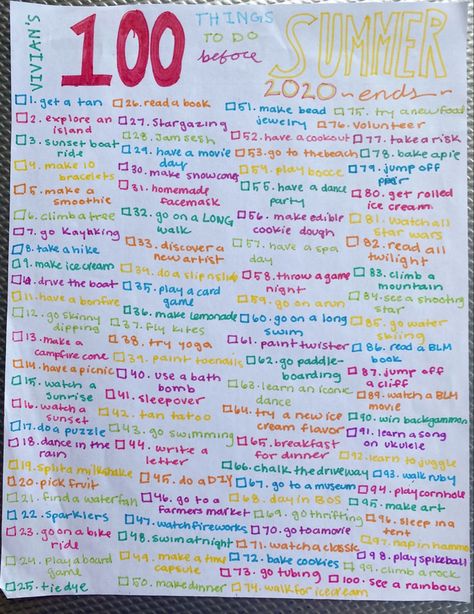 VIVIAN'S
100
THINGS
TO DO
before
SUMMER
2020 ends
1. get a tan
2. explore an
island
3. sunset boat
ride
4. make 10
bracelets
5. make a
smoothie
6. climb a tree
7. go Kayaking
8. take a hike
9. make ice cream
10. drive the boat
11. have a bonfire
12. go skinny
dipping
13. make a
campfire cone
14. have a picnic
15. watch a
sunrise
16. watch a
sunset
17. do a puzzle
18. dance in the
rain
19. split a milkshake
20. pick fruit
21. find a waterfall
22. sparklers
23. go on a bike
ride
24. play a board
game
25. tie dye
26. read a book
27. Stargazing
28. Jam sesh
29. have a movie
day
30. make snowcones
31. homemade
facemask
32. go on a LONG
walk
33. discover a
new artist
34. do a slip n slide
35. play a card
game
36. make lemonade
37. fly kites
38. try yoga
39. paint toenails
40. use a bath
bomb
41. sleepover
42. tan tatoo
43. go swimming
44. write a
letter
45. do a DIY
46. go to a
farmers market
47. watch fireworks
48. swim at night
49. make a time
capsule
50. make dinner
51. make bead
jewelry
52. have a cookout
53. go to the beach
54. play bocce
55. have a dance
party
56. make edible
cookie dough
57. have a spa
day
58. throw a game
night
59. go on a run
60. go on a long
swim
61. paint twister
62. go paddle-
boarding
63. learn an iconic
dance
64. try a new ice
cream flavor
65. breakfast
for dinner
66. chalk the driveway
67. go to a museum
68. day in BOS
69. go thrifting
70. go to a movie
71. watch a classic
72. bake cookies
73. go tubing
74. walk for ice cream
75. try a new food
76. volunteer
77. take a risk
78. bake a pie
79. jump off
pier
80. get rolled
ice cream
81. watch all
star wars
82. read all
twilight
83. climb a
mountain
84. see a shooting
star
85. go water
skiing
86. read a BLM
book
87. jump off
a cliff
89. watch a BLM
movie
90. win backgammon
91. learn a song
on ukulele
92. learn to juggle
93. walk ruby
94. play cornhole
95. make art
96. sleep in a
tent
97. nap in hammock
98. play spikeball
99. climb a rock
100. see a rainbow